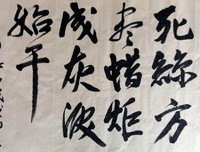 死絲方
盡蜡炬
成灰淚
始干